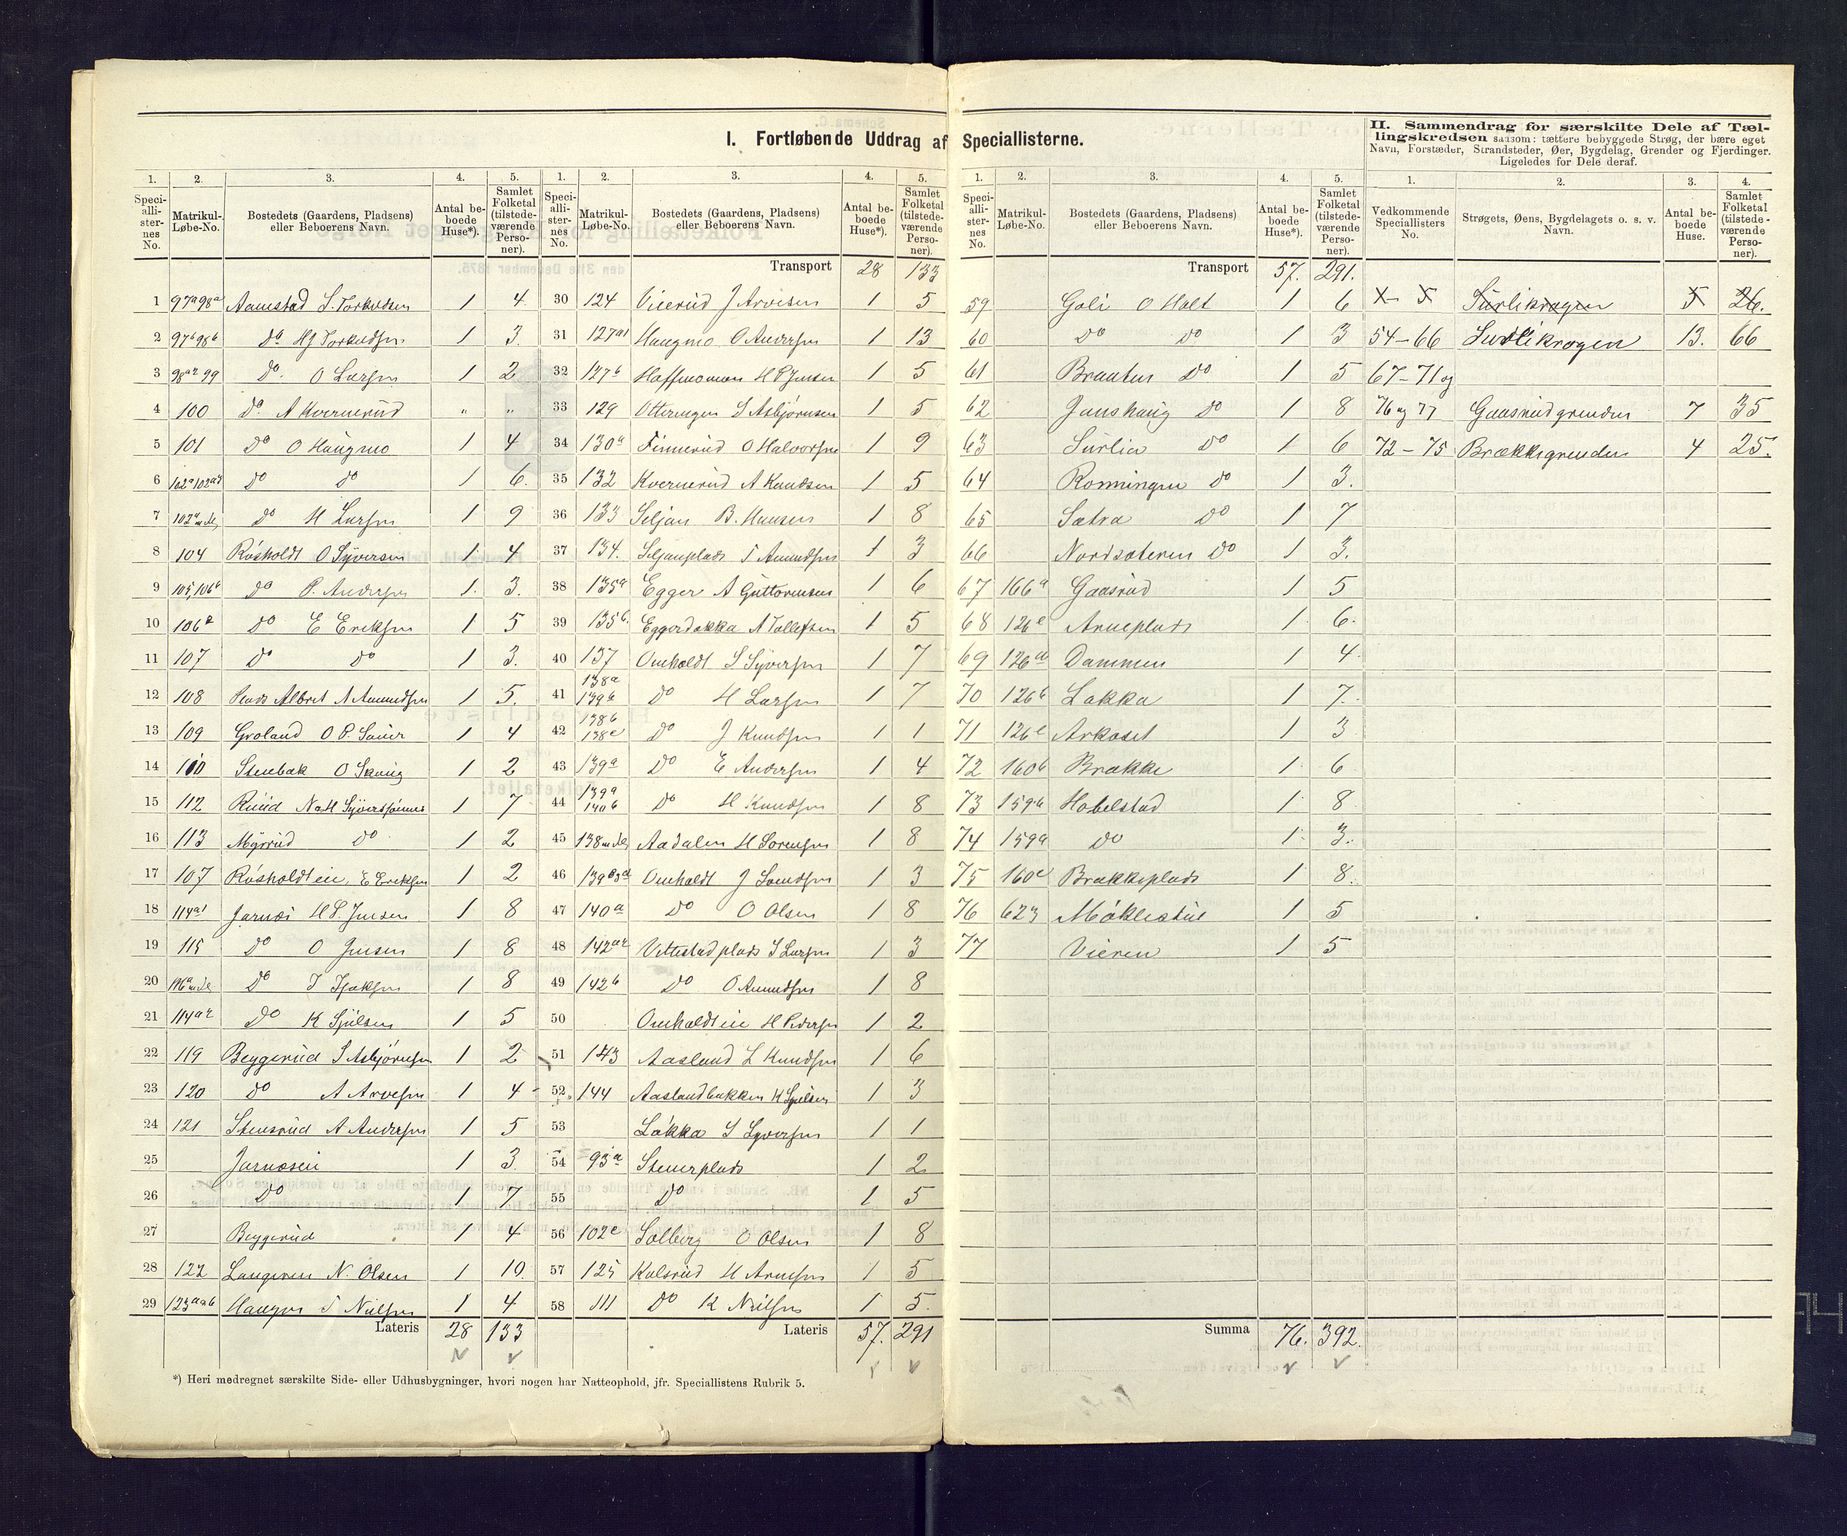 I. Fortløbende Uddrag af Speciallisterne.
1. 2. 3. 4. 5. 1. 2. 3. 4. 5.
Speciallisternes No. Matrikul-Løbe-No. Bostedets (Gaardens, Pladsens) eller Beboerens Navn. Antal beboede Huse*). Samlet Folketal (tilstedeværende Personer). Speciallisternes No. Matrikul-Løbe-No. Bostedets (Gaardens, Pladsens) eller Beboerens Navn. Antal beboede Huse*). Samlet Folketal (tilstedeværende Personer).
Transport 28 133
1 97a98a Aamstad S. Torkildsen 1 4
2 97b98b Do Hj Torkildsen 1 3.
3 98a2 99 Do. O Larsen 1 2
4 100 Do A Kvernerud " "
5 101 Do O Haugmo 1 4
6 Do Do 1 6.
7 Do H Larsen 1 9
8 104 Rösholdt O Syversen 1 4
9 105,106b Do P. Andersen 1. 3.
10 106a Do E Eriksen 1 5
11 107 Do Do 1 3.
12 108 A Amundsen 1 5.
13 109 Groland O P. 1 4
14 110 Stenbæk O Skaug 1 2
15 112 Ruud 1 7
16 113 Myrrud Do 1 2
17 107 Rösholdteie, E Eriksen 1 2
18 114a1 Jarnæs H S. Jensen 1 8
19 115 Do O Jensen 1 8
20 Do 1 8
21 114a2 Do K 1 5
22 119 Beggerud S Asbjörnsen 1 2
23 120 Do A Arvesen 1 4
24 121 Stensrud A Andersen 1 5
25 Jarnæseie 1 3
26 Do 1 7
27 Beggerud 1 4
28 122 Langeren N. Olsen 1 10
29 123aab Haugen T Nielsen 1 4
Lateris 28 133
30 124 Vierud J Arvesen 1 5
31 127a1 Haugmo O Andersen 1 13
32 127b Haffmomoen H P Jensen 1 5
33 129 Otteringen S Asbjörnsen 1 5
34 130a Finnerud O Halvorsen 1 9
35 132 Kvernerud A Knudsen 1 5
36 133 Seljan B. Hansen 1 8
37 134. Seljanplads T Amundsen 1 3
38 135a Egger A Guttormsen 1 6
39 135b. Eggerdokka A Tollefsen 1 5
40 137 Omholdt S Syversen 1 7
41 138a 139b Do H Larsen 1 7
42 138b 138c Do J Knudsen 1 1
43 139a Do E Andersen 1 4
44 139a 140b Do H Knudsen 1 8
45 Aadalen H Sorensen 1 8
46 Omholdt J 1 3
47 140a Do O Olsen 1 8
48 142a2 Vittestadplads S Larsen 1 3
49 142b Do O Amundsen 1 8
50 Omholdteie H Pedersen 1 2
51 143 Aasland L Knudsen 1 6
52 144 Aaslandbakken K 1 3
53 Løkka S Syversen 1 1
54 93a Stenerplads 1 2
55 Do 1 5
56 102c Solberg O Olsen 1 8
57 125 Kalsrud H Arnesen 1 5
58 111 Do K Nielsen 1 5.
Lateris 57. 291
*) Heri medregnet særskilte Side- eller Udhusbygninger, hvori nogen har Natteophold, jfr. Speciallistens Rubrik 5.
1. 2. 3. 4. 5.
Speciallisternes No. Matrikul-Løbe-No. Bostedets (Gaardens, Pladsens) eller Beboerens Navn. Antal beboede Huse*). Samlet Folketal (tilstedeværende Personer).
Transport 57. 291.
59 Goli O Holt 1 6
60 Do Do 1 3
61 Braaten Do 1 5
62 Jonshaug Do 1 8
63 Surlia Do 1 6
64 Rønningen Do 1 3.
65 Sætra Do 1 7
66 Nordsæteren Do 1 3.
67 166a Gaasrud 1 5
68 126c Arneplads 1 6.
69 126a Dammen 1 4
70 126b Løkka 1 7.
71 126c 1 3
72 160b Brække 1 6
73 159b Hobelstad 1 8
74 159a Do 1 3.
75 160c Brækkeplads 1 8
76 623 1 5
77 Vieren 1 5
Summa 76. 392.
II. Sammendrag for særskilte Dele af Tællingskredsen saasom: tættere bebyggede Strøg, der bære eget Navn, Forstæder, Strandsteder, Øer, Bygdelag, Grender og Fjerdinger. Ligeledes for Dele deraf.
1. 2. 3. 4.
Vedkommende Speciallisters No. Strøgets, Øens, Bygdelagets o. s. v. Navn. Antal beboede Huse. Samlet Folketal (tilstedeværende Personer).
Surlikrogen 5 26.
54-66 Surlikrogen 13. 66
67-71 og
76 og 77 Gaasrudgrenden 7 35
72-75 Brækkegrenden 4 25.